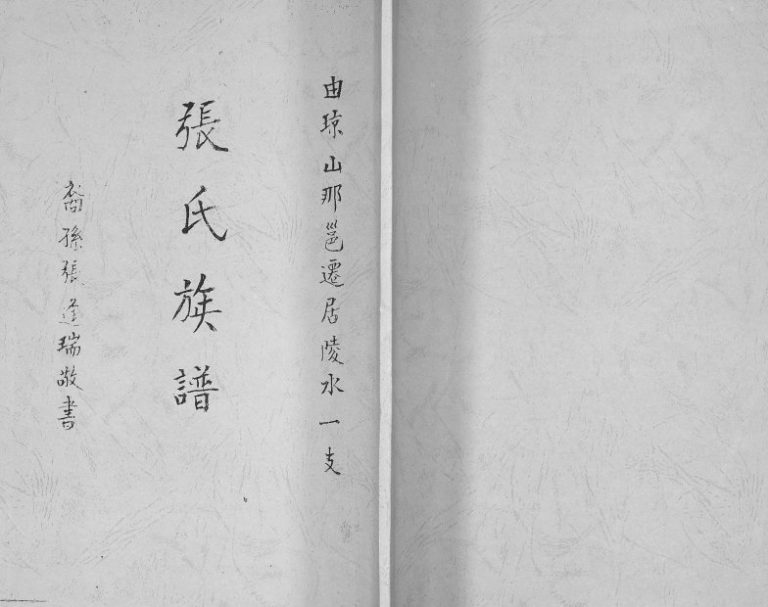 由琼山那邕遷居陵水一支
張氏族譜
裔孫張逢瑞敬書